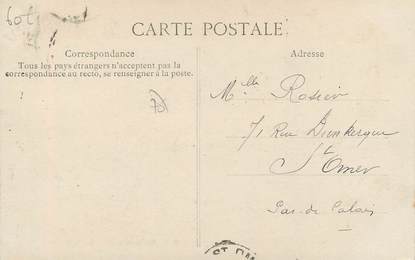 CARTE POSTALE
Correspondance
Tous les pays étrangers n'acceptent pas la
correspondance au recto, se renseigner à la poste.
Adresse
Melle Rosier
71 Rue Dunkerque
St Omer
Pas-de-Calais